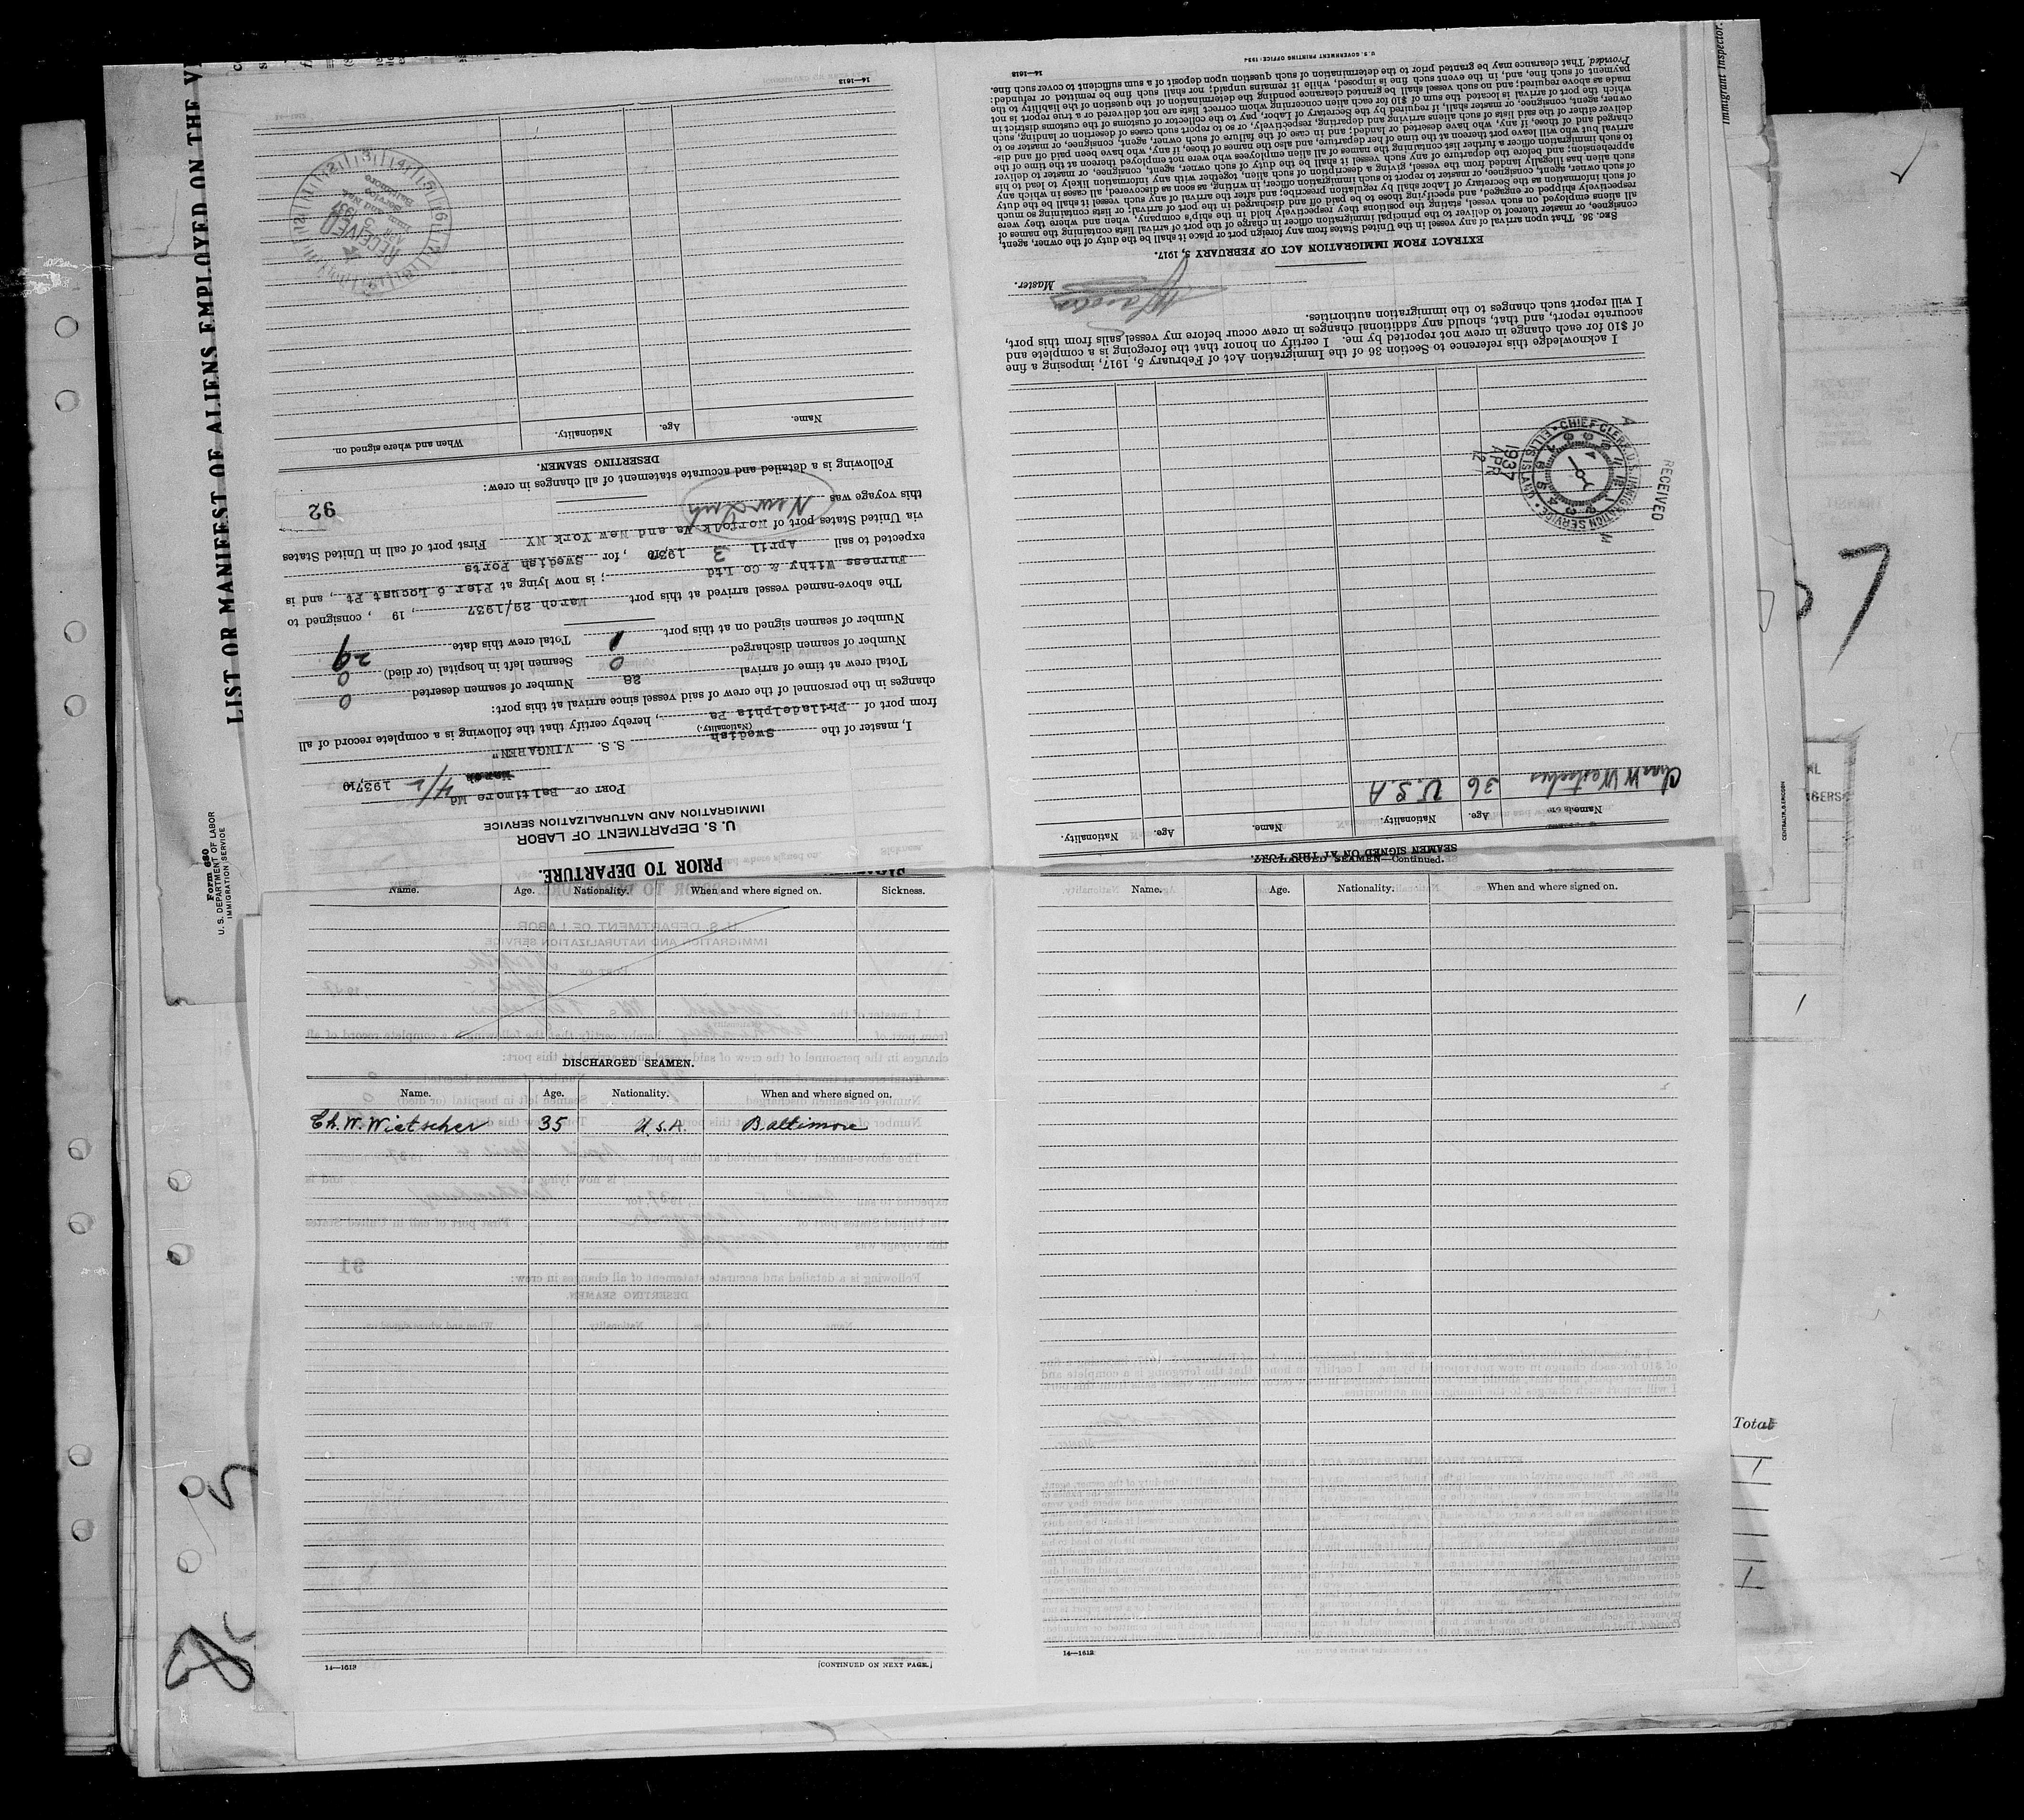 LIST OR MANIFEST OF ALIENS EMPLOYED ON THE
Form 680
U. S. DEPARTMENT OF LABOR
IMMIGRATION SERVICE
Immigrant Inspector.
PRIOR TO DEPARTURE.
U. S. DEPARTMENT OF LABOR
IMMIGRATION AND NATURALIZATION SERVICE
PORT OF Baltimore Md
4/2 1937
I, master of the Swedish S. S. VINGAREN"
(Nationality)
from port of Philadelphia Pa, hereby certify that the following is a complete record of all
changes in the personnel of the crew of said vessel since arrival at this port:
Total crew at time of arrival 28 Number of seamen deserted 0
Number of seamen discharged 0 Seamen left in hospital (or died) 0
Number of seamen signed on at this port 1 Total crew this date 29
The above-named vessel arrived at this port March 29/1937, 19 , consigned to
Furness Withy & Co Ltd ; is now lying at Pier 6 Locust Pt , and is
expected to sail April 3 1937, for Swedish Ports
via United States port of Norfolk Va and New York NY First port of call in United States
this voyage was New York
92
Following is a detailed and accurate statement of all changes in crew:
DESERTING SEAMEN.
Name. Age. Nationality. When and where signed on.
RECEIVED
APR 3 1937
Immig. and Nat.
Service
Baltimore
14—1613
SEAMEN SIGNED ON AT THIS PORT.
Name. Age. Nationality. Name. Age. Nationality.
Chas W 36 U.S.A
RECEIVED
CHIEF CLERK U.S. IMMIGRATION SERVICE ELLIS ISLAND
1937
APR
I acknowledge this reference to Section 36 of the Immigration Act of February 5, 1917, imposing a fine
of $10 for each change in crew not reported by me. I certify on honor that the foregoing is a complete and
accurate report, and that, should any additional changes in crew occur before my vessel sails from this port,
I will report such changes to the immigration authorities.
Master.
EXTRACT FROM IMMIGRATION ACT OF FEBRUARY 5, 1917.
SEC. 36. That upon arrival of any vessel in the United States from any foreign port or place it shall be the duty of the owner, agent,
consignee, or master thereof to deliver to the principal immigration officer in charge of the port of arrival lists containing the names of
all aliens employed on such vessel, stating the positions they respectively hold in the ship's company, when and where they were
respectively shipped or engaged, and specifying those to be paid off and discharged in the port of arrival; or lists containing so much
of such information as the Secretary of Labor shall by regulation prescribe; and after the arrival of any such vessel it shall be the duty
of such owner, agent, consignee, or master to report to such immigration officer, in writing, as soon as discovered, all cases in which any
such alien has illegally landed from the vessel, giving a description of such alien, together with any information likely to lead to his
apprehension; and before the departure of any such vessel it shall be the duty of such owner, agent, consignee, or master to deliver
to such immigration officer a further list containing the names of all alien employees who were not employed thereon at the time of the
arrival but who will leave port thereon at the time of her departure, and also the names of those, if any, who have been paid off and dis-
charged and of those, if any, who have deserted or landed; and in case of the failure of such owner, agent, consignee, or master so to
deliver either of the said lists of such aliens arriving and departing, respectively, or so to report such cases of desertion or landing, such
owner, agent, consignee, or master shall, if required by the Secretary of Labor, pay to the collector of customs of the customs district in
which the port of arrival is located the sum of $10 for each alien concerning whom correct lists are not delivered or a true report is not
made as above required; and no such vessel shall be granted clearance pending the determination of the question of the liability to the
payment of such fine, and, in the event such fine is imposed, while it remains unpaid; nor shall such fine be remitted or refunded:
Provided, That clearance may be granted prior to the determination of such question upon deposit of a sum sufficient to cover such fine.
14—1613
U. S. GOVERNMENT PRINTING OFFICE: 1934
Name. Age. Nationality. When and where signed on. Sickness.
DISCHARGED SEAMEN.
Name. Age. Nationality. When and where signed on.
Ch. W. Wietscher 35 U.S.A. Baltimore
14—1613
[CONTINUED ON NEXT PAGE.]
DISCHARGED SEAMEN—Continued.
Name. Age. Nationality. When and where signed on.
14—1613
Total
1
1
7